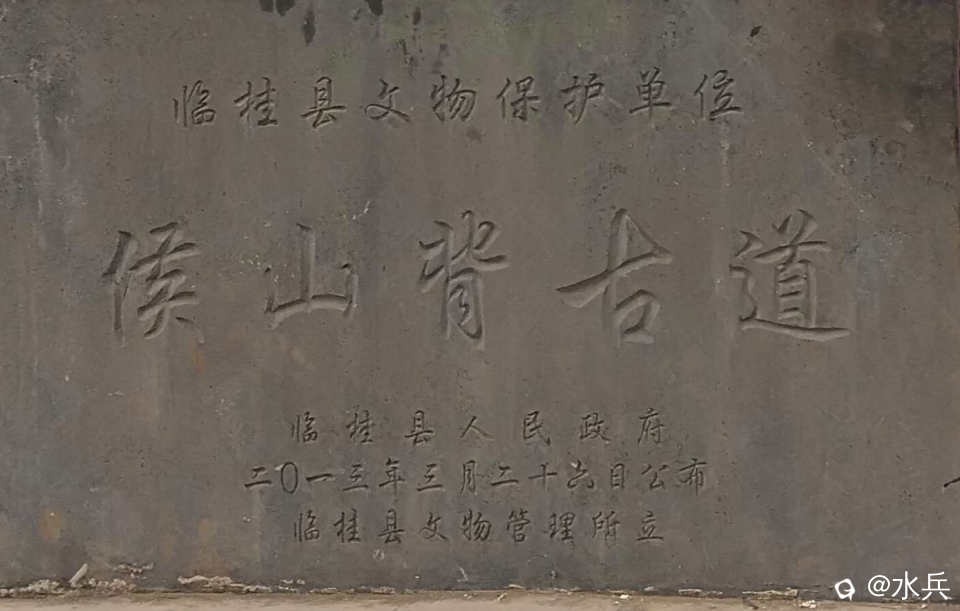 临桂县文物保护单位
侯山背古道
临桂县人民政府
二〇一三年三月二十六日公布
临桂县文物管理所立
@水兵